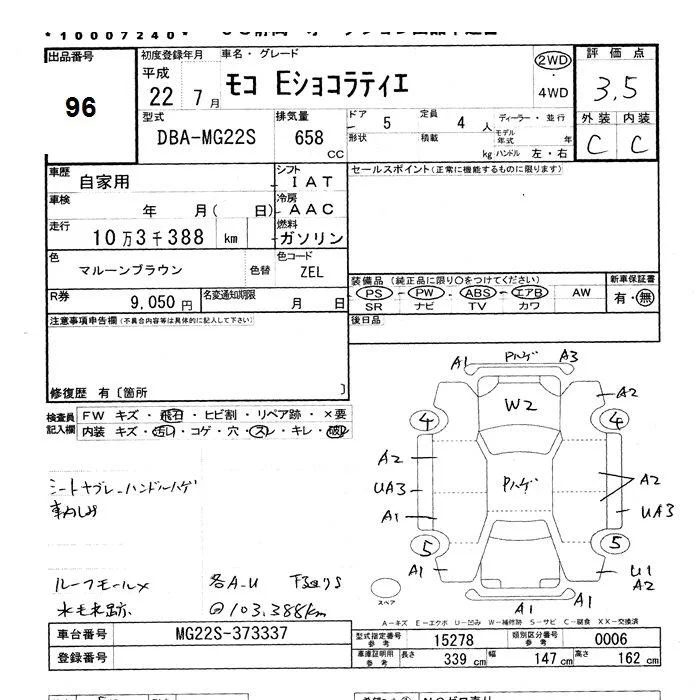 *10007240*
出品番号
96
初度登録年月
車名・グレード
平成
22 7月
モコ Eショコラティエ
2WD
4WD
評価点
3.5
外装 内装
C C
型式
DBA-MG22S
排気量
658
CC
ドア 5
定員 4人
ディーラー・並行
形状
積載
kg
モデル年式
年
ハンドル 左・右
車歴
自家用
シフト
IAT
車検
年 月( 日)
冷房
AAC
走行
10万3千388 km
燃料
ガソリン
色
マルーンブラウン
色替
色コード
ZEL
R券
9,050円
名変通知期限
月 日
セールスポイント(正常に機能するものに限ります)
装備品(純正品に限り○をつけてください)
PS - PW - ABS - エアB AW
SR ナビ TV カワ
新車保証書
有・無
後日品
注意事項申告欄(不具合内容等は具体的に記入して下さい)
修復歴 有〔箇所 〕
検査員記入欄
FW キズ・飛石・ヒビ割・リペア跡・×要
内装 キズ・汚レ・コゲ・穴・スレ・キレ・破レ
ルーフモール×
各A-U 下廻りS
@103,388km
A1 Pハゲ A3
W2
A2
4 4
A2
UA3
A1
Pハゲ
A2
UA3
5 5
A1
U1
A2
A1 A1
スペア
A-キズ E-エクボ U-凹み W-補修跡 S-サビ C-腐食 XX-交換済
車台番号
MG22S-373337
登録番号
型式指定番号
参考
15278
類別区分番号
参考
0006
車庫証明用
参考
長さ 339cm
幅 147cm
高さ 162cm